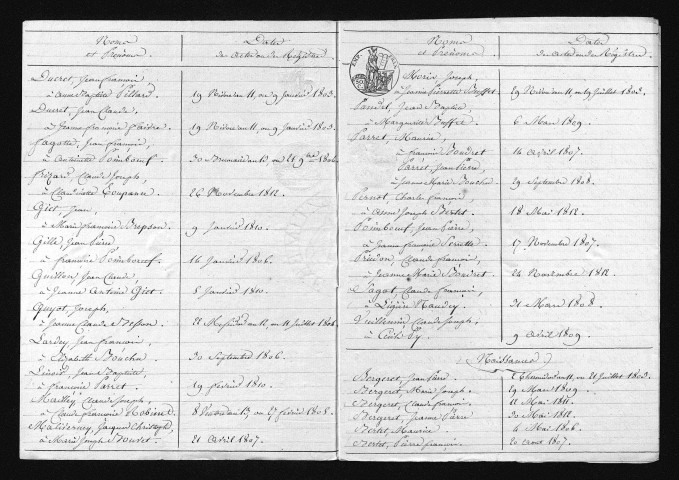 Noms
et Prénoms
Dates
des actes ou du Registre
Ducret, Jean François
à Anne Baptiste
19 Nivôse an 11, ou 9 Janvier 1803.
Ducret, Jean Claude,
à Jeanne Françoise
19 Nivôse an 11, ou 9 Janvier 1803.
Fagotte, Jean François,
à Antoinette Pomboeuf
30 Brumaire an 13, ou 21 9bre 1804.
Frézard, Claude Joseph,
à Claudinette
26 Novembre 1812.
Giet, Jean,
à Marie Françoise Brepson.
9 Janvier 1810.
Gille, Jean Pierre
à Françoise Pomboeuf.
16 Janvier 1806.
Guillon, Jean Claude,
à Jeanne Antoine Giet.
8 Janvier 1810.
Guyot, Joseph,
à Jeanne Claude Besson.
22 Messidor an 12, ou 11 Juillet 1804.
Lardey, Jean François,
à Elizabeth Bouchu.
30 Septembre 1806.
Jean Baptiste,
à Françoise Parret.
19 Février 1810.
Mailley, Claude Joseph,
à Claude Françoise Robinet
27 Février 1805.
Matiderney, Jacques Christophe,
à Marie Joseph Bouret.
21 Avril 1807.
Noms
et Prénoms
Dates
des actes ou du Registre
Morin, Joseph,
à Jeanne Pierrette Buffet
29 Nivôse an 11, ou 19 Juillet 1803.
Pandet, Jean Baptiste,
à Marguerite Buffet.
6 Mars 1809.
Parret, Maurice,
à Françoise Boudret
14 Avril 1807.
Parret, Jean Pierre,
à Jeanne Marie Bouchu.
29 Septembre 1808.
Pernot, Charles François,
à Anne Joseph Bertet.
18 Mai 1812.
Pomboeuf, Jean Pierre,
à Jeanne Françoise
17 Novembre 1807.
Claude François,
à Jeanne Marie
24 Novembre 1812.
Claude François,
à Naudey.
21 Mars 1808.
Vuillemin, Claude Joseph,
à
9 Avril 1809.
Naissances
Bergeret, Jean Pierre.
Thermidor an 11, ou 21 Juillet 1803.
Bergeret, Marie Joseph.
29 Mai 1809.
Bergeret, Claude François.
22 Mai 1811.
Bergeret, Jeanne Pierre
30 Mai 1812.
Bertet, Maurice.
4 Mai 1806.
Bertet, Pierre François.
20 Août 1807.